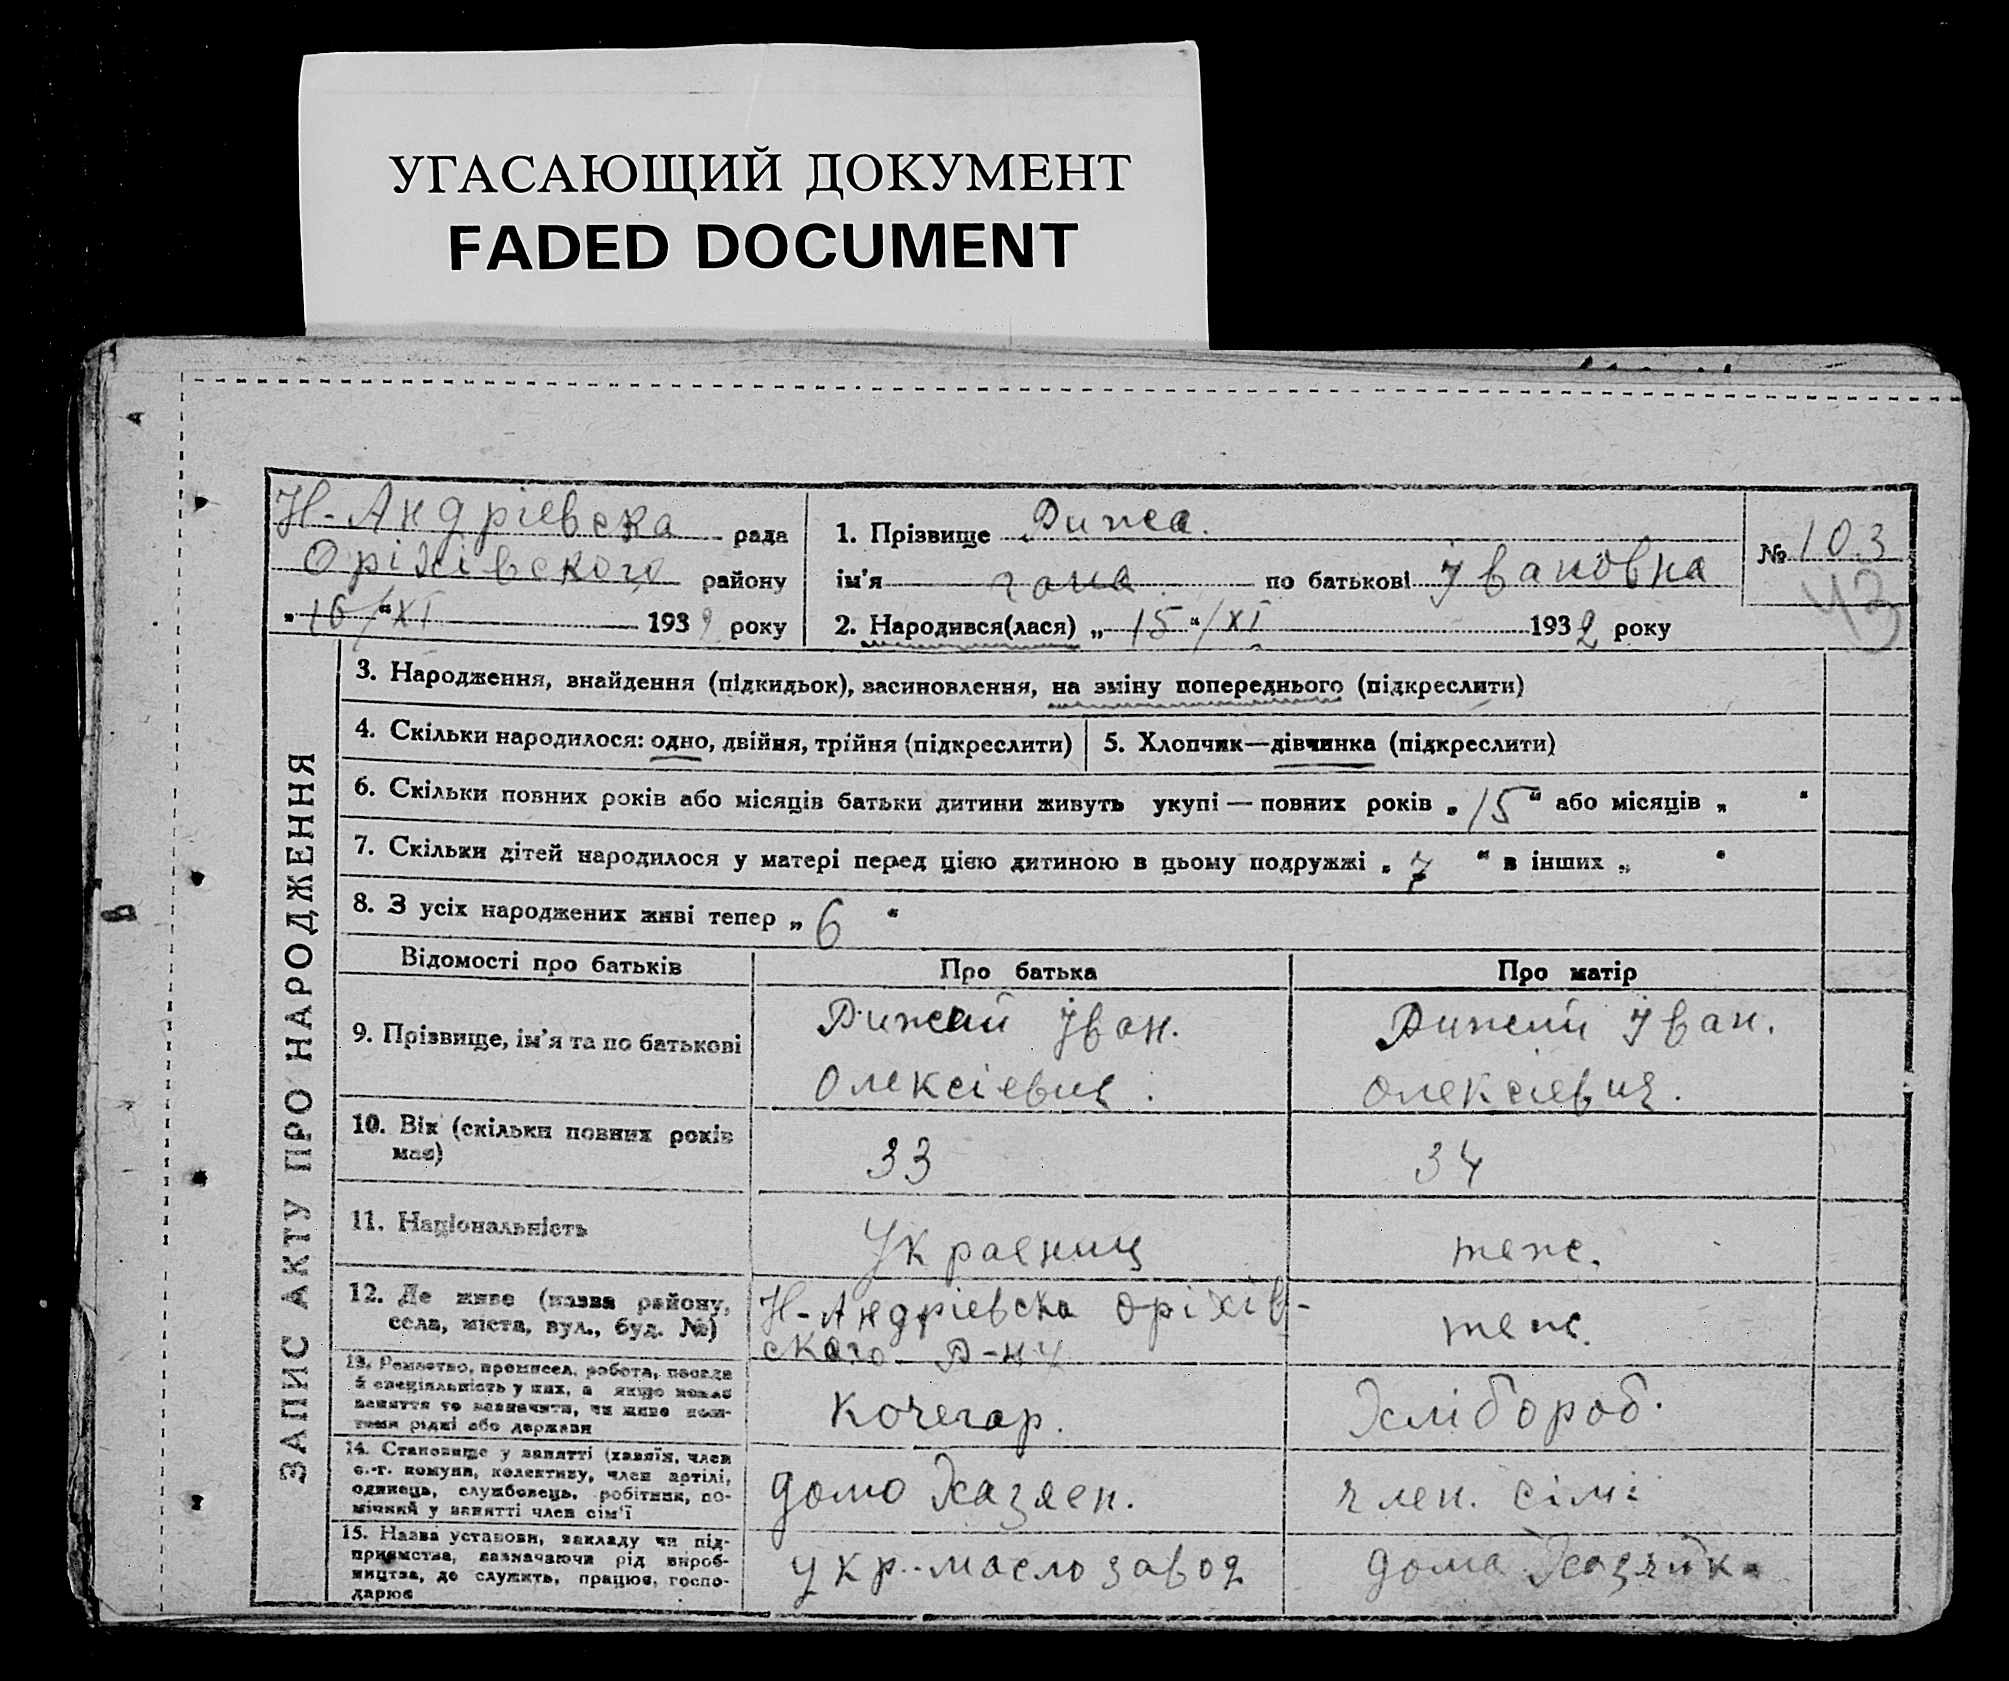 УГАСАЮЩИЙ ДОКУМЕНТ
FADED DOCUMENT
Н-Андріевска рада
Оріхівского району
„16/“XI 1932 року
1. Прізвище Рижа.
ім'я по батькові Івановна
2. Народився(лася) „15“/XI 1932 року
№ 103
43
ЗАПИС АКТУ ПРО НАРОДЖЕННЯ
3. Народження, знайдення (підкидьок), засиновлення, на зміну попереднього (підкреслити)
4. Скільки народилося: одно, двійня, трійня (підкреслити)
5. Хлопчик—дівчинка (підкреслити)
6. Скільки повних років або місяців батьки дитини живуть укупі — повних років „15“ або місяців „ “
7. Скільки дітей народилося у матері перед цією дитиною в цьому подружжі „7“ в інших „ “
8. З усіх народжених живі тепер „6“
Відомості про батьків
Про батька
Про матір
9. Прізвище, ім'я та по батькові
Рижий Іван.
Олексієвич.
Рижий Іван.
Олексієвич.
10. Вік (скільки повних років
має)
33
34
11. Національність
Украениц
теже.
12. Де живе (назва району,
села, міста, вул., буд. №)
Н-Андріевска Оріхів-
ского Р-ну
теже.
13. Ремество, промисел, робота, посада
й спеціяльність у них, а якщо немає
заняття то зазначити, чи живе кош-
тами рідні або держави
Кочегар.
Хлібороб.
14. Становище у занятті (хазяїн, член
с.-г. комуни, колективу, член артілі,
одинець, службовець, робітник, по-
мічний у занятті член сім'ї
домо Хазяен.
член. сімі
15. Назва установи, закладу чи під-
приємства, зазначаючи рід вироб-
ництва, де служить, працює, госпо-
дарює
укр.-маслозавод
дома